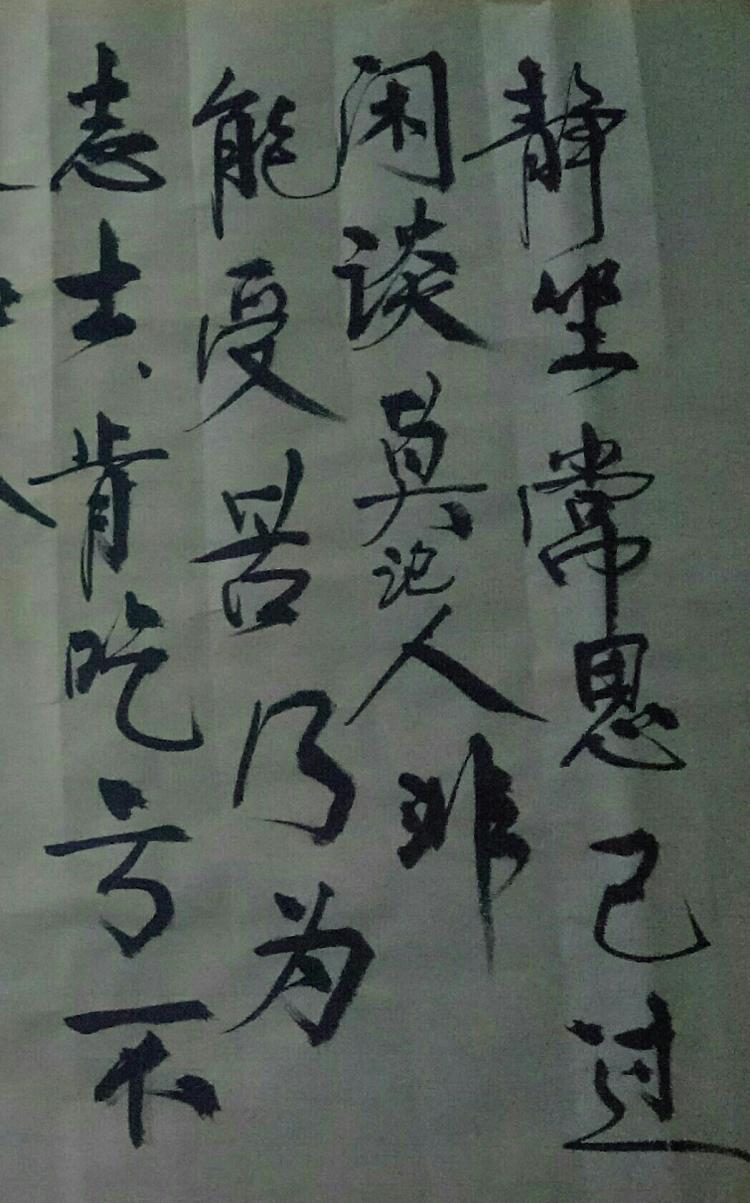 静坐常思己过
闲谈莫论人非
能受苦乃为
志士肯吃亏不